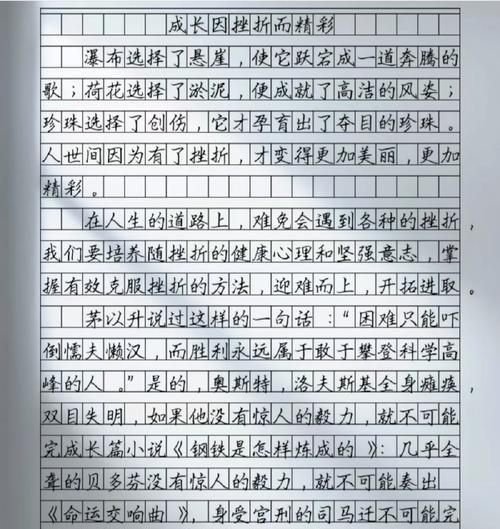 成长因挫折而精彩
瀑布选择了悬崖，使它跃宕成一道奔腾的
歌；荷花选择了淤泥，便成就了高洁的风姿；
珍珠选择了创伤，它才孕育出了夺目的珍珠。
人世间因为有了挫折，才变得更加美丽，更加
精彩。
在人生的道路上，难免会遇到各种的挫折，
我们要培养随挫折的健康心理和坚强意志，掌
握有效克服挫折的方法，迎难而上，开拓进取。
茅以升说过这样的一句话：“困难只能吓
倒懦夫懒汉，而胜利永远属于敢于攀登科学高
峰的人。”是的，奥斯特，洛夫斯基全身瘫痪，
双目失明，如果他没有惊人的毅力，就不可能
完成长篇小说《钢铁是怎样炼成的》：几乎全
聋的贝多芬没有惊人的毅力，就不可能奏出
《命运交响曲》，身受宫刑的司马迁不可能完